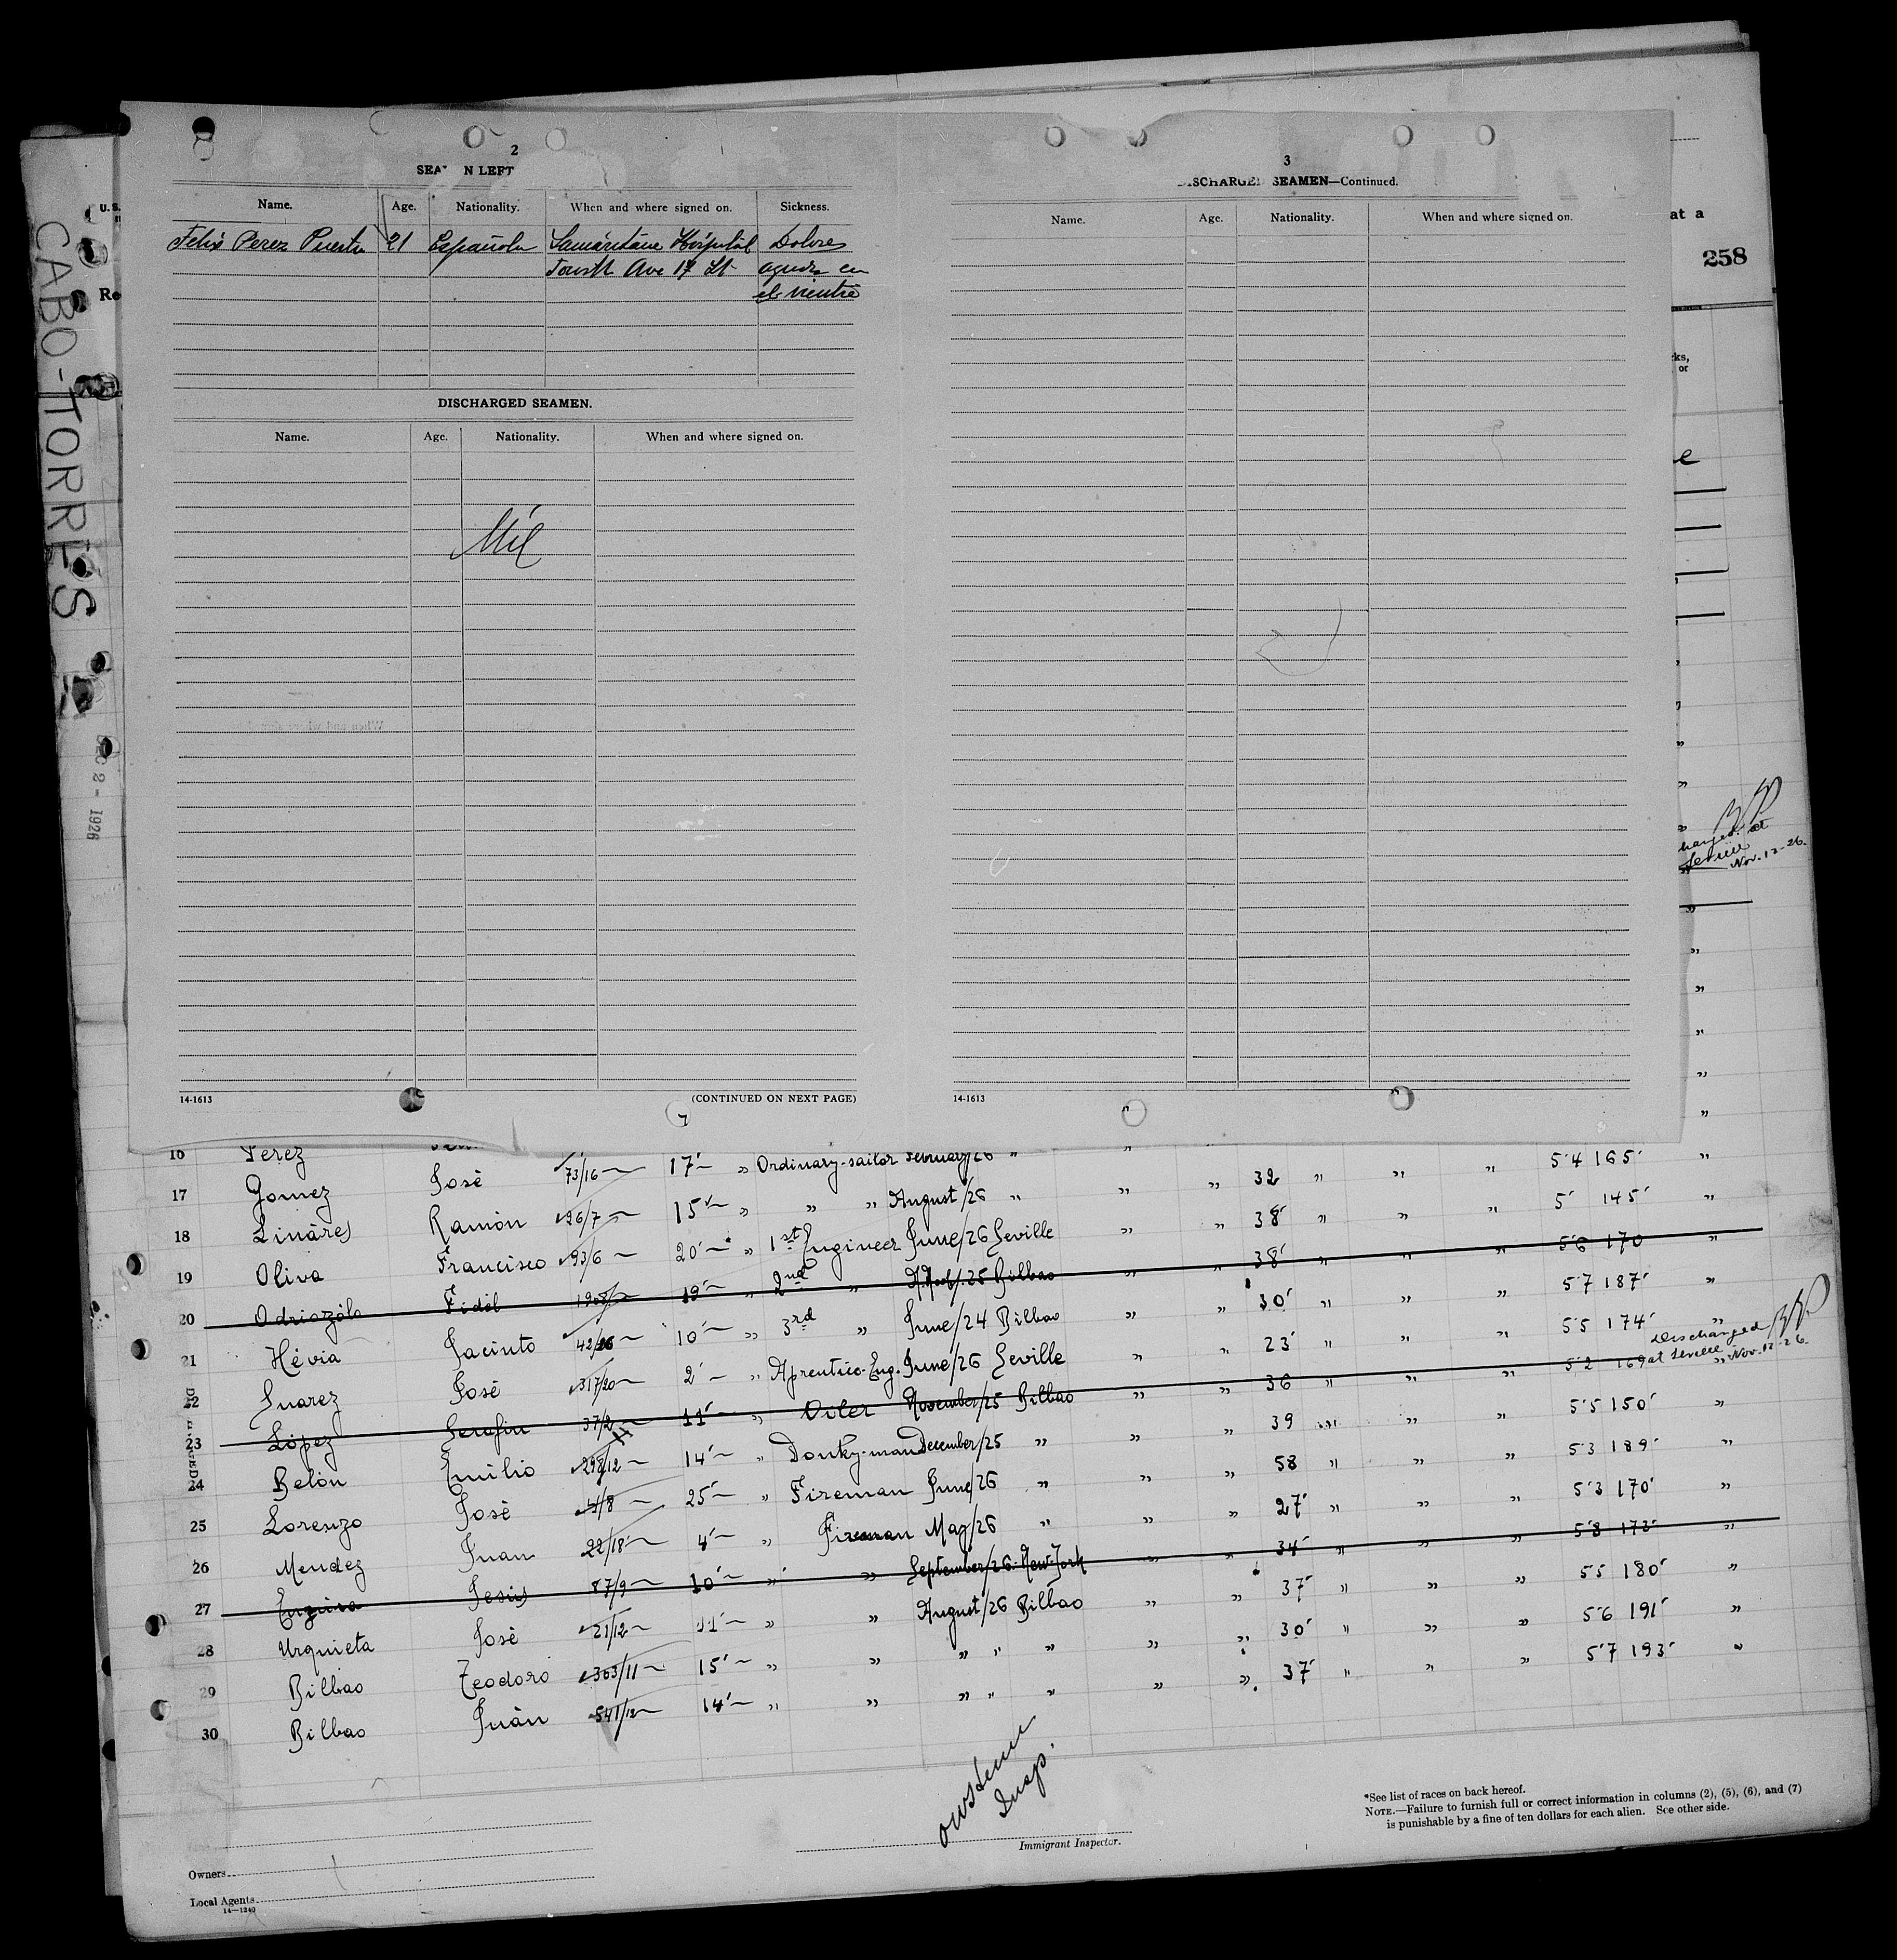 CABO-TORRES
1926
2
SEA N LEFT
Name. Age. Nationality. When and where signed on. Sickness.
Felix Perez Puerta 21 Española Samaritane Hospital Dolores
Fourth Ave 17 St agudos en
el vientre
DISCHARGED SEAMEN.
Name. Age. Nationality. When and where signed on.
Nil
14-1613 (CONTINUED ON NEXT PAGE)
3
SEAMEN—Continued.
Name. Age. Nationality. When and where signed on.
14-1613
U.S.
Re
at a
258
ks,
or
Seville
Nov. 12-26.
16 Perez 73/16 17 „ Ordinary-sailor February/26 „ „ „ 32 „ „ „ 5'4 165 „
17 Gomez José 96/7 15 „ „ „ August/26 „ „ „ 38 „ „ „ 5 145 „
18 Linares Ramón 93/6 20 „ 1st Engineer June/26 Seville „ „ 38 „ „ „ 5'6 170 „
19 Oliva Francisco 19 „ 2nd „ 25 Bilbao „ „ 30 „ „ „ 5'7 187 „
20 Odriozóla Fidél 42/26 10 „ 3rd „ June/24 Bilbao „ „ 23 „ „ „ 5'5 174 „
Discharged
at Seville Nov. 12-26.
21 Hévia Jacinto 317/20 2 „ Aprentice-Eng. June/26 Seville „ „ 36 „ „ „ 5'2 169 „
22 Suarez José 37/2 11 „ Oiler November/25 Bilbao „ „ 39 „ „ „ 5'5 150 „
23 López Serafin 298/12 14 „ Donky-man December/25 „ „ „ 58 „ „ „ 5'3 189 „
24 Belón Emilio 4/8 25 „ Fireman June/26 „ „ „ 27 „ „ „ 5'3 170 „
25 Lorenzo José 22/18 4 „ Fireman May/26 „ „ „ 34 „ „ „ 5'8 „
26 Mendez Juan 87/9 10 „ „ September/26 New-York „ „ 37 „ „ „ 5'5 180 „
27 Jesús 21/12 11 „ „ August/26 Bilbao „ „ 30 „ „ „ 5'6 191 „
28 Urquieta José 303/11 15 „ „ „ „ „ „ „ 37 „ „ „ 5'7 193 „
29 Bilbao Teodoro 541/12 14 „ „ „ „ „ „ „
30 Bilbao Juán
Insp.
Immigrant Inspector.
*See list of races on back hereof.
NOTE.—Failure to furnish full or correct information in columns (2), (5), (6), and (7)
is punishable by a fine of ten dollars for each alien. See other side.
Owners
Local Agents
14—1240